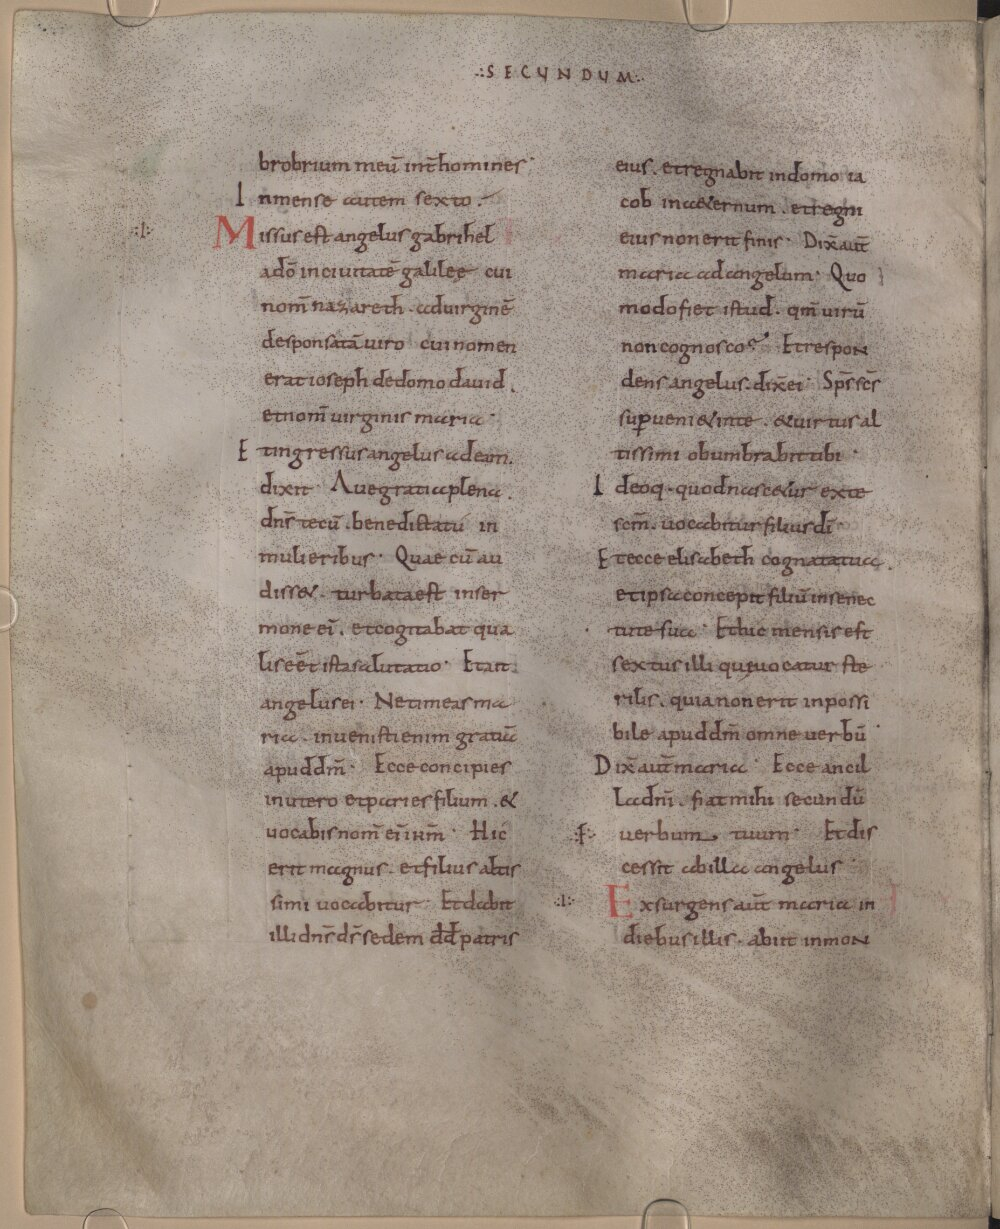 .:SECUNDUM:.
brobrium meū int̄ homines
In mense autem sexto.
:I:
Missus est angelus gabrihel
a dō in ciuitatē galilęę cui
nom̄ nazareth. ad uirginē
desponsatā uiro cui nomen
erat ioseph de domo dauid.
et nom̄ uirginis maria.
Et ingressus angelus ad eam.
dixit. Aue gratia plena.
dns̄ tecū. benedicta tu in
mulieribus. Quae cū au
disset. turbata est in ser
mone eī. et cogitabat qua
lis eēt ista salutatio. Et ait
angelus ei. Ne timeas ma
ria. inuenisti enim gratiā
apud dm̄. Ecce concipies
in utero et paries filium. &
uocabis nom̄ eī ihm̄. Hic
erit magnus. et filius altis
simi uocabitur. Et dabit
illi dns̄ ds̄ sedem dd̄ patris
eius. et regnabit in domo ia
cob in aeternum. et regni
eius non erit finis. Dix̄ aut̄
maria ad angelum. Quo
modo fiet istud. qm̄ uirū
non cognosco? Et respon
dens angelus. dix̄ ei. Sps̄ scs̄
sup̄ueniet in te. & uirtus al
tissimi obumbrabit tibi.
Ideoq. quod nascetur ex te
scm̄. uocabitur filius dī
Et ecce elisabeth cognata tua.
et ipsa concepit filiū in senec
tute sua. Et hic mensis est
sextus illi que uocatur ste
rilis. quia non erit inpossi
bile apud dm̄ omne uerbū.
Dix̄ aut̄ maria. Ecce ancil
la dnī. fiat mihi secundū
:F:
uerbum tuum. Et dis
cessit ab illa angelus.
:I:
Exsurgens aut̄ maria in
diebus illis. abiit in mon